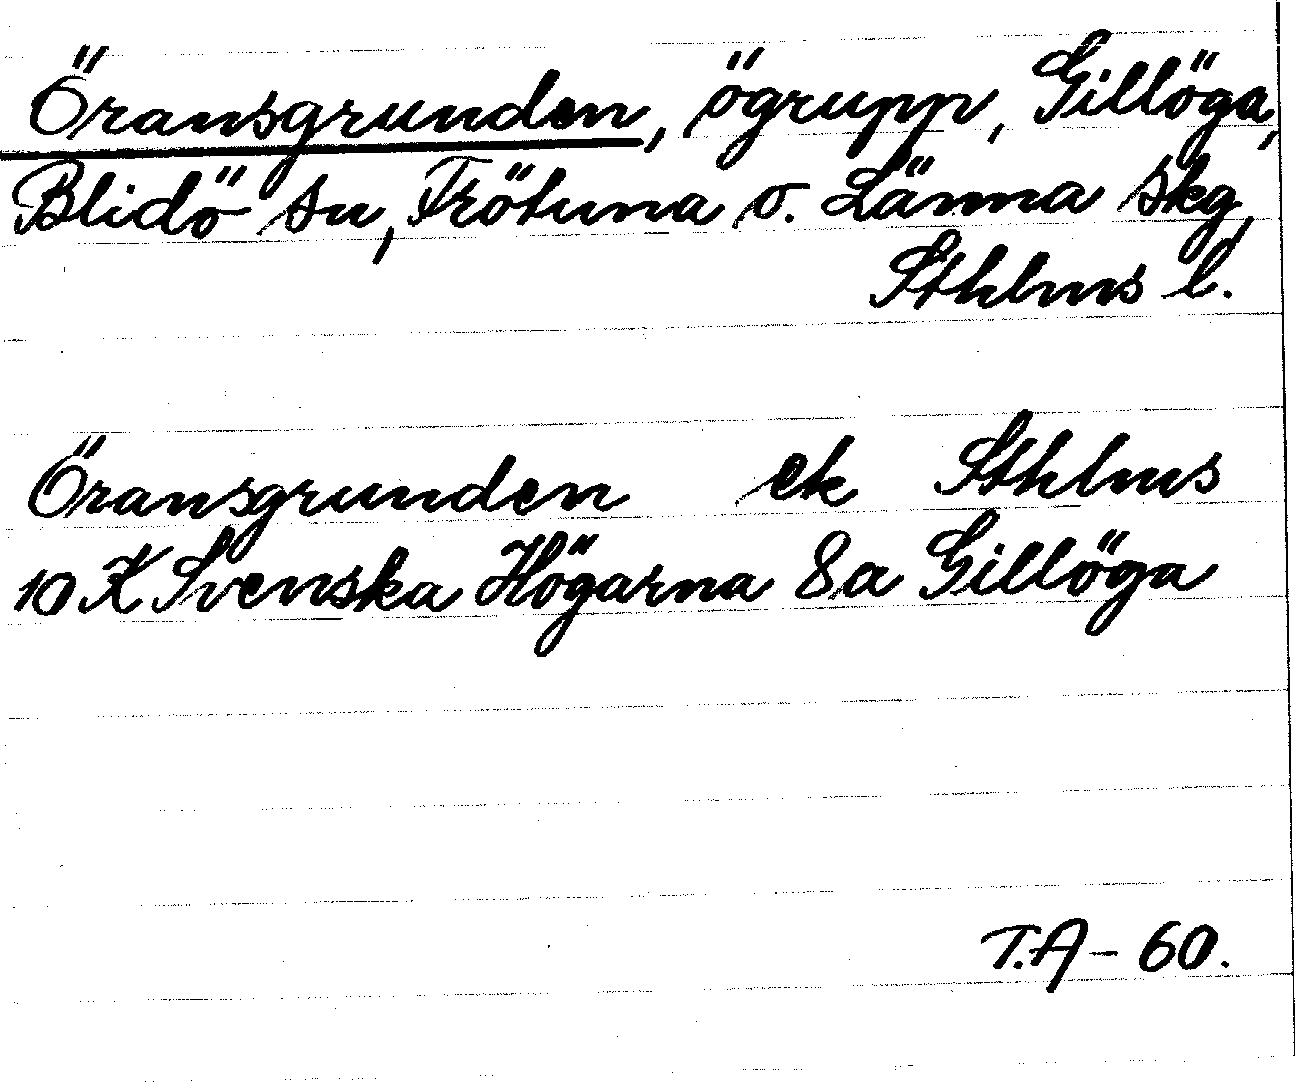 Öransgrunden, ögrupp, Gillöga,
Blidö sn, Frötuna o. Länna skg,
Sthlms l.
Öransgrunden ek Sthlms
10 K Svenska Högarna 8a Gillöga
T.A - 60.